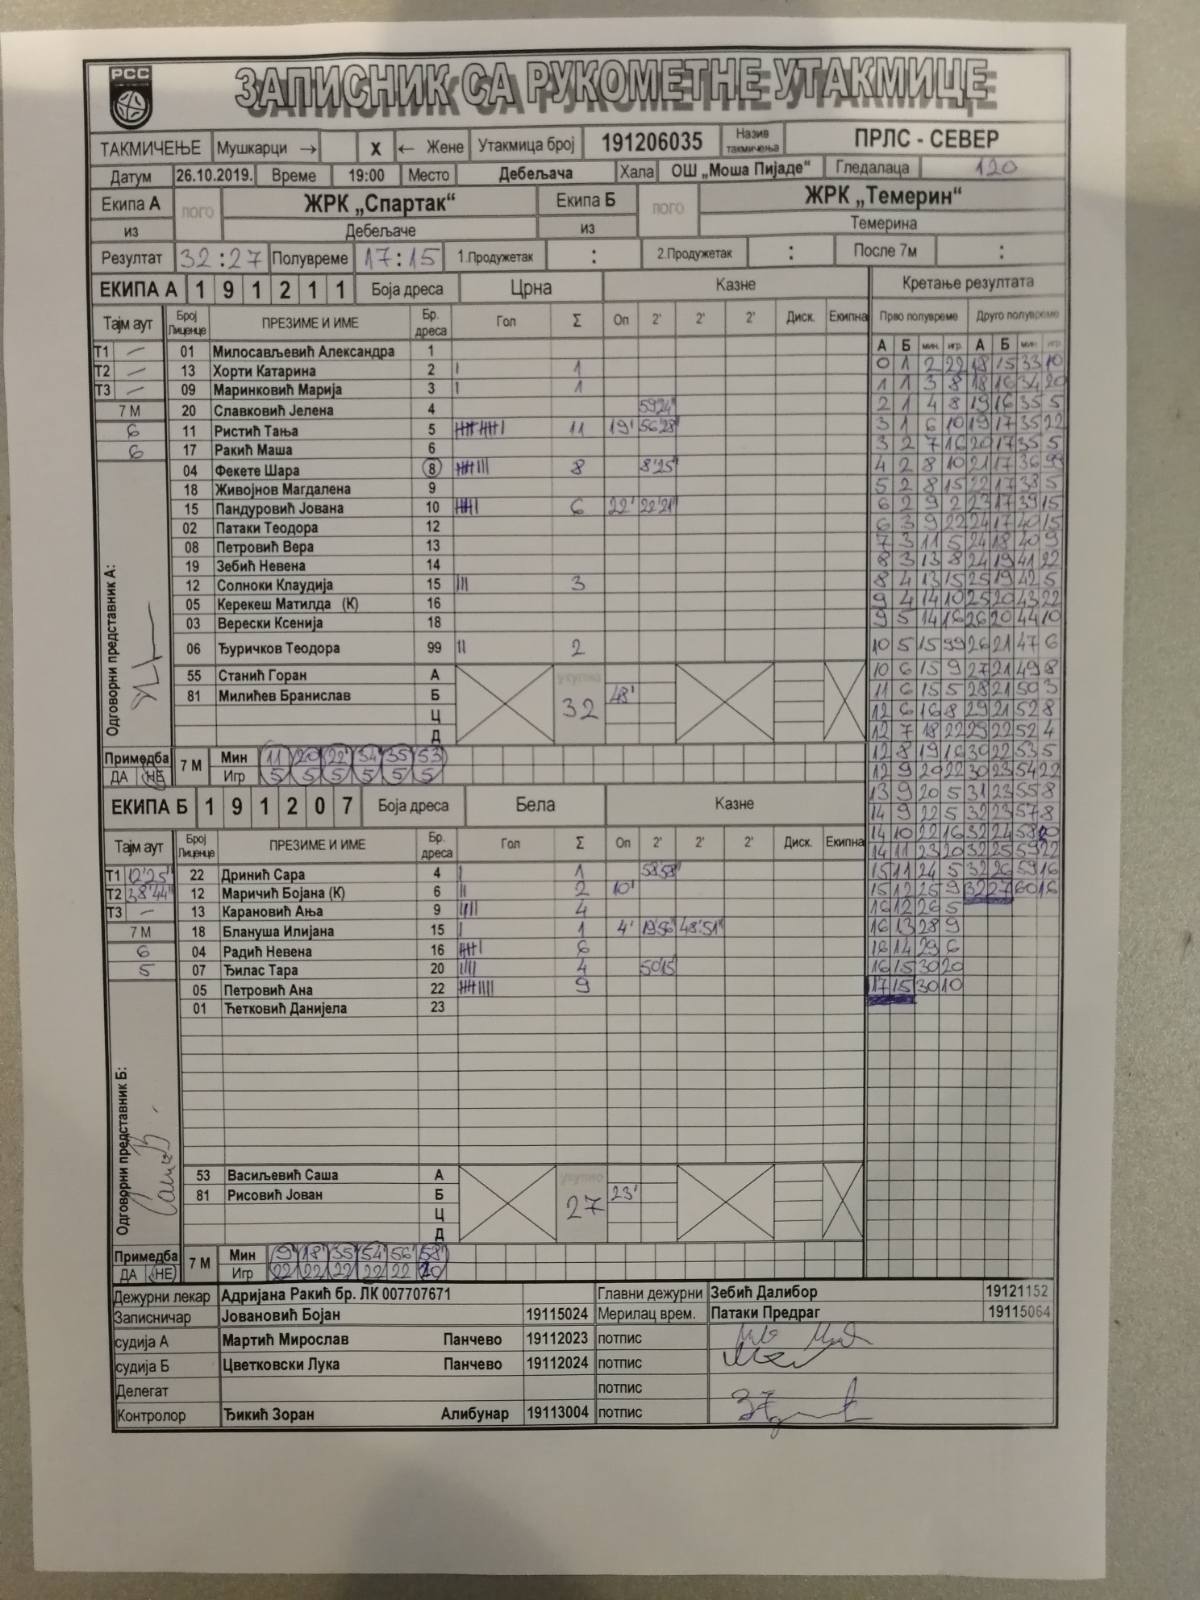 РСС
ЗАПИСНИК СА РУКОМЕТНЕ УТАКМИЦЕ
ТАКМИЧЕЊЕ Мушкарци → x ← Жене Утакмица број 191206035 Назив такмичења ПРЛС - СЕВЕР
Датум 26.10.2019. Време 19:00 Место Дебељача Хала ОШ „Моша Пијаде“ Гледалаца 120
Екипа А лого ЖРК „Спартак“ Екипа Б лого ЖРК „Темерин“
из Дебељаче из Темерина
Резултат 32:27 Полувреме 17:15 1.Продужетак : 2.Продужетак : После 7м :
ЕКИПА А 1 9 1 2 1 1 Боја дреса Црна Казне Кретање резултата
Тајм аут Број Лиценце ПРЕЗИМЕ И ИМЕ Бр. дреса Гол Σ Оп 2' 2' 2' Диск. Екипна Прво полувреме Друго полувреме
А Б мин. игр. А Б мин игр
Т1 – 01 Милосављевић Александра 1
Т2 – 13 Хорти Катарина 2 I 1
Т3 – 09 Маринковић Марија 3 I 1
7 М 20 Славковић Јелена 4 59'24"
6 11 Ристић Тања 5 11 19' 56'28"
6 17 Ракић Маша 6
04 Фекете Шара 8 8 8'25"
18 Живојнов Магдалена 9
15 Пандуровић Јована 10 6 22' 22'21"
02 Патаки Теодора 12
08 Петровић Вера 13
19 Зебић Невена 14
12 Солноки Клаудија 15 III 3
05 Керекеш Матилда (К) 16
03 Верески Ксенија 18
06 Ђуричков Теодора 99 II 2
55 Станић Горан А укупно 32
81 Милићев Бранислав Б 48'
Ц
Д
Одговорни представник А:
Примедба 7 М Мин 11 20 22 34 35 53
ДА НЕ Игр 5 5 5 5 5 5
ЕКИПА Б 1 9 1 2 0 7 Боја дреса Бела Казне
Тајм аут Број Лиценце ПРЕЗИМЕ И ИМЕ Бр. дреса Гол Σ Оп 2' 2' 2' Диск. Екипна
Т1 12'25" 22 Дринић Сара 4 I 1 58'58"
Т2 38'44" 12 Маричић Бојана (К) 6 II 2 10'
Т3 – 13 Карановић Ања 9 IIII 4
7 М 18 Блануша Илијана 15 I 1 4' 19'56" 48'51"
6 04 Радић Невена 16 6
5 07 Ђилас Тара 20 IIII 4 50'15"
05 Петровић Ана 22 9
01 Ћетковић Данијела 23
53 Васиљевић Саша А укупно 27
81 Рисовић Јован Б 23'
Ц
Д
Одговорни представник Б:
Примедба 7 М Мин 9 18 35 54 56 58
ДА (НЕ) Игр 22 22 22 22 22 20
0 1 2 22 18 15 33 10
1 1 3 8 18 16 34 20
2 1 4 8 19 16 35 5
3 1 6 10 19 17 35 22
3 2 7 16 20 17 35 5
4 2 8 10 21 17 36 99
5 2 8 15 22 17 38 5
6 2 9 2 23 17 39 15
6 3 9 22 24 17 40 15
7 3 11 5 24 18 40 9
8 3 13 8 24 19 41 22
8 4 13 15 25 19 42 5
9 4 14 10 25 20 43 22
9 5 14 16 26 20 44 10
10 5 15 99 26 21 47 6
10 6 15 9 27 21 49 8
11 6 15 5 28 21 50 3
12 6 16 8 29 21 52 8
12 7 18 22 29 22 52 4
12 8 19 16 30 22 53 5
12 9 20 22 30 23 54 22
13 9 20 5 31 23 55 8
14 9 22 5 32 23 57 8
14 10 22 16 32 24 58 20
14 11 23 20 32 25 59 22
15 11 24 5 32 26 59 16
15 12 25 9 32 27 60 16
16 12 26 5
16 13 28 9
16 14 29 6
16 15 30 20
17 15 30 10
Дежурни лекар Адријана Ракић бр. ЛК 007707671 Главни дежурни Зебић Далибор 19121152
Записничар Јовановић Бојан 19115024 Мерилац врем. Патаки Предраг 19115064
судија А Мартић Мирослав Панчево 19112023 потпис
судија Б Цветковски Лука Панчево 19112024 потпис
Делегат потпис
Контролор Ђикић Зоран Алибунар 19113004 потпис